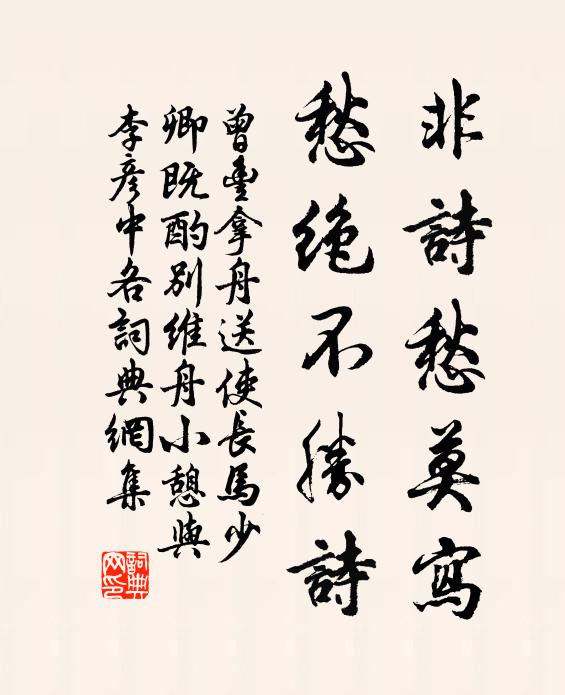 非詩愁莫寫
愁絶不勝詩
曾豐拿舟送使長馬少
卿既酌別維舟小憩與
李彥中各詞典網集
詞典網印